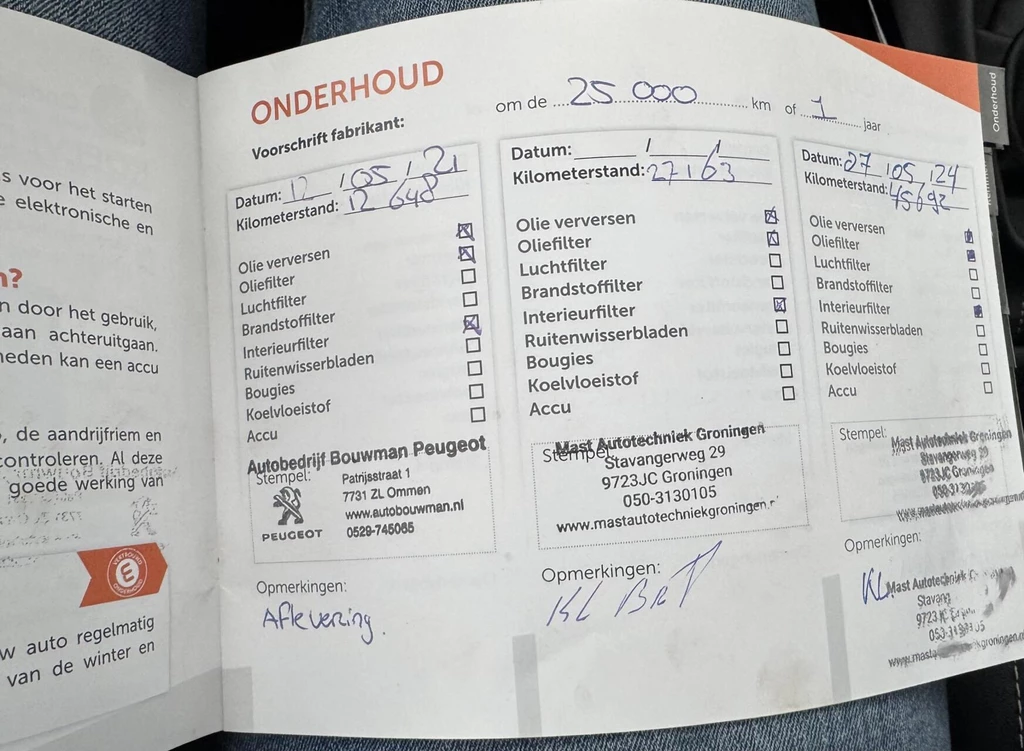 s voor het starten
e elektronische en
n?
n door het gebruik,
aan achteruitgaan.
heden kan een accu
, de aandrijfriem en
controleren. Al deze
goede werking van
w auto regelmatig
van de winter en
ONDERHOUD
Voorschrift fabrikant:
om de 25 000 km of 1 jaar
Onderhoud
Datum: 12 / 05 / 21
Kilometerstand: 12 648
Olie verversen
Oliefilter
Luchtfilter
Brandstoffilter
Interieurfilter
Ruitenwisserbladen
Bougies
Koelvloeistof
Accu
Autobedrijf Bouwman Peugeot
Stempel:
Patrijsstraat 1
7731 ZL Ommen
www.autobouwman.nl
0529-745065
PEUGEOT
Opmerkingen:
Aflevering.
Datum: / /
Kilometerstand: 27163
Olie verversen
Oliefilter
Luchtfilter
Brandstoffilter
Interieurfilter
Ruitenwisserbladen
Bougies
Koelvloeistof
Accu
Mast Autotechniek Groningen
Stempel:
Stavangerweg 29
9723JC Groningen
050-3130105
www.mastautotechniekgroningen.n
Opmerkingen:
KL
Datum: 27 / 05 / 24
Kilometerstand: 45692
Olie verversen
Oliefilter
Luchtfilter
Brandstoffilter
Interieurfilter
Ruitenwisserbladen
Bougies
Koelvloeistof
Accu
Stempel:
Mast Autotechniek Groningen
Stavangerweg 29
9723JC Groningen
Opmerkingen:
KL
Mast Autotechniek